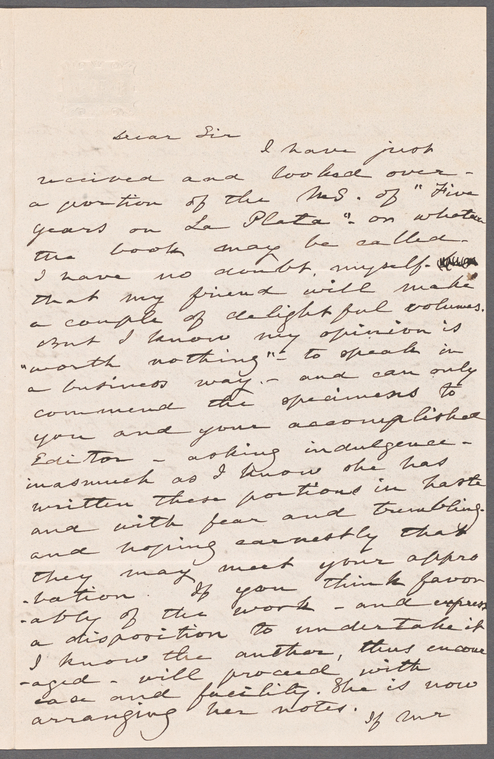 Dear Sir
I have just
received and looked over -
a portion of the M.S. of "Five
years on La Plata" - or whatever
the book may be called -
I have no doubt, myself -
that my friend will make
a couple of delightful volumes.
But I know my opinion is
"worth nothing" - to speak in
a business way - and can only
commend the specimens to
you and your accomplished
Editor - asking indulgence -
inasmuch as I know she has
written these portions in haste
and with fear and trembling -
and hoping earnestly that
they may meet your appro
-bation. If you think favor
-ably of the work - and express
a disposition to undertake it
I know the author, thus encour
-aged - will proceed with
ease and facility. She is now
arranging her notes.
If Mr